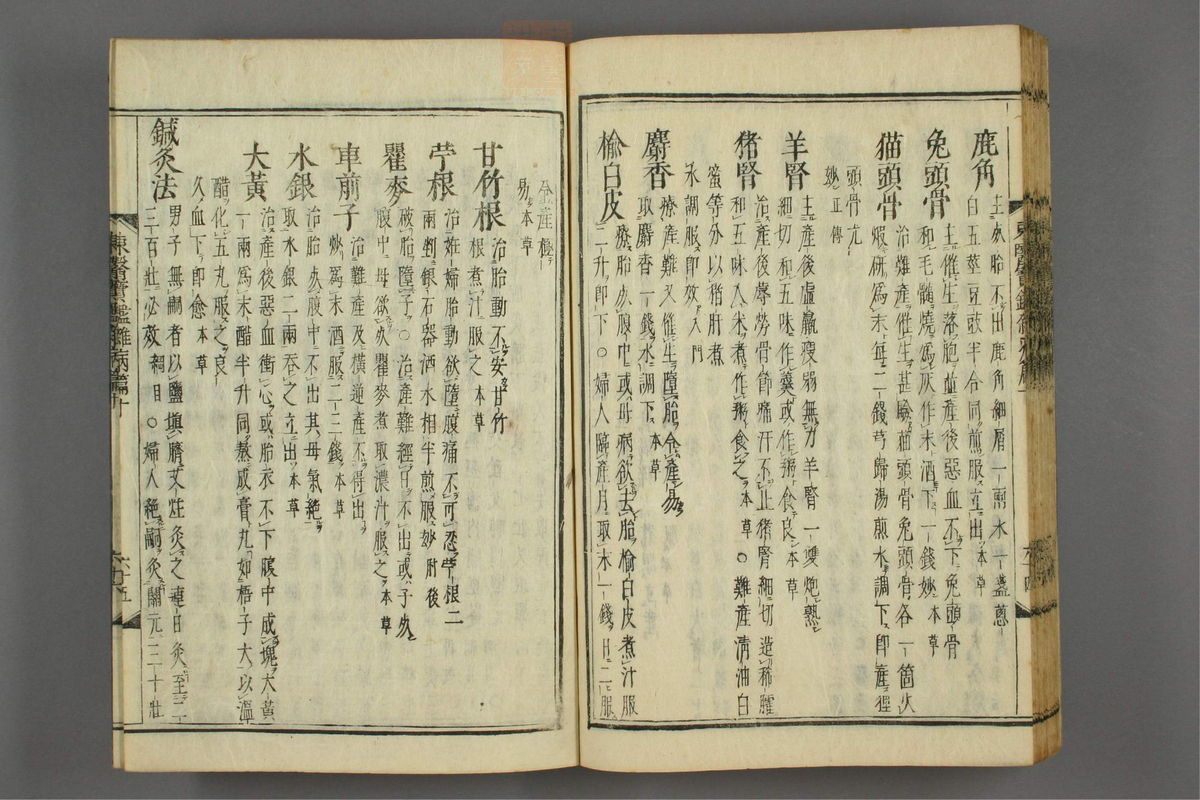 鹿角
主死胎不出鹿角細屑一兩水一盞葱
白五莖豆豉半合同煎服立出本草
兔頭骨
主催生落胞並產後惡血不下兔頭骨
和毛髓燒爲灰作末酒下一錢妙本草
猫頭骨
治難產催生甚驗猫頭骨兔頭骨各一箇火
煅硏爲末每二錢芎歸湯煎水調下卽產狸
頭骨尤
妙正傳
羊腎
主產後虛羸瘦弱無力羊腎一雙炮熟
細切和五味作羹或作粥食良本草
猪腎
治產後蓐勞骨節痛汗不止猪腎細切造稀臛
和五味入米煮作粥食之本草○難產淸油白
蜜等分以猪肝煮
水調服卽效入門
麝香
療產難又催生墮胎令產易
取麝香一錢水調下本草
楡白皮
療胎死腹中或母病欲去胎楡白皮煮汁服
二升卽下○婦人臨產月取末一錢日二服
令產極
易本草
甘竹根
治胎動不安甘竹
根煮汁服之本草
苧根
治姙婦胎動欲墮腹痛不可忍苧根二
兩剉銀石器酒水相半煎服妙肘後
瞿麥
破胎墮子○治產難經日不出或子死
腹中母欲死瞿麥煮取濃汁服之本草
車前子
治難產及橫逆產不得出
炒爲末酒服二三錢本草
水銀
治胎死腹中不出其母氣絶
取水銀二兩吞之立出本草
大黃
治產後惡血衝心或胎衣不下腹中成塊大黃
一兩爲末醋半升同熬成膏丸如梧子大以溫
醋化五丸服之良
久血下卽愈本草
鍼灸法
男子無嗣者以鹽塡臍艾炷灸之連日灸至二
三百壯必效綱目○婦人絶嗣灸關元三十壯
東醫寶鑑雜病篇十
六十五